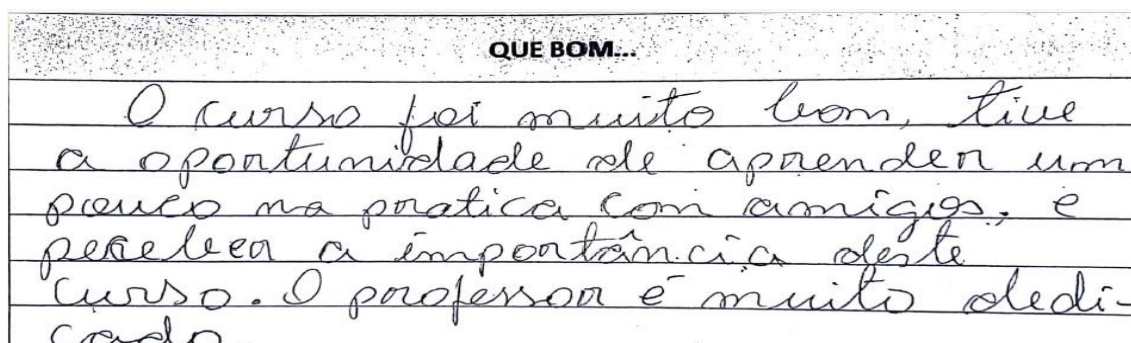 QUE BOM...
O curso foi muito bom, tive
a oportunidade de aprender um
pouco na pratica com amigos, e
perceber a importância deste
curso. O professor é muito dedi-
cado.